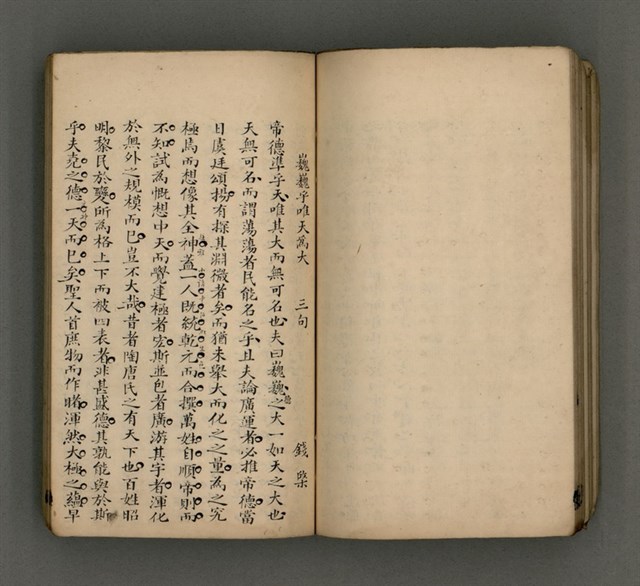 巍巍乎唯天為大　三句　錢棨
帝德準乎天唯其大而無可名也夫曰巍巍之大一如天之大也
天無可名而謂蕩蕩者民能名之乎且夫論廣運者必推帝德當
日虞廷頌揚有探其淵微者矣而猶未舉大而化之之量為之究
極焉而想像其全神蓋一人既統乾元而合撰萬姓自順帝則而
不知試為慨想中天而覺建極者宏斯並包者廣游其宇者渾化
於無外之規模而已豈不大哉昔者陶唐氏之有天下也百姓昭
明黎民於變所為格上下而被四表者非甚盛德其孰能與於斯
乎夫堯之德一天而已矣聖人首庶物而作睹渾然大極之蘊早